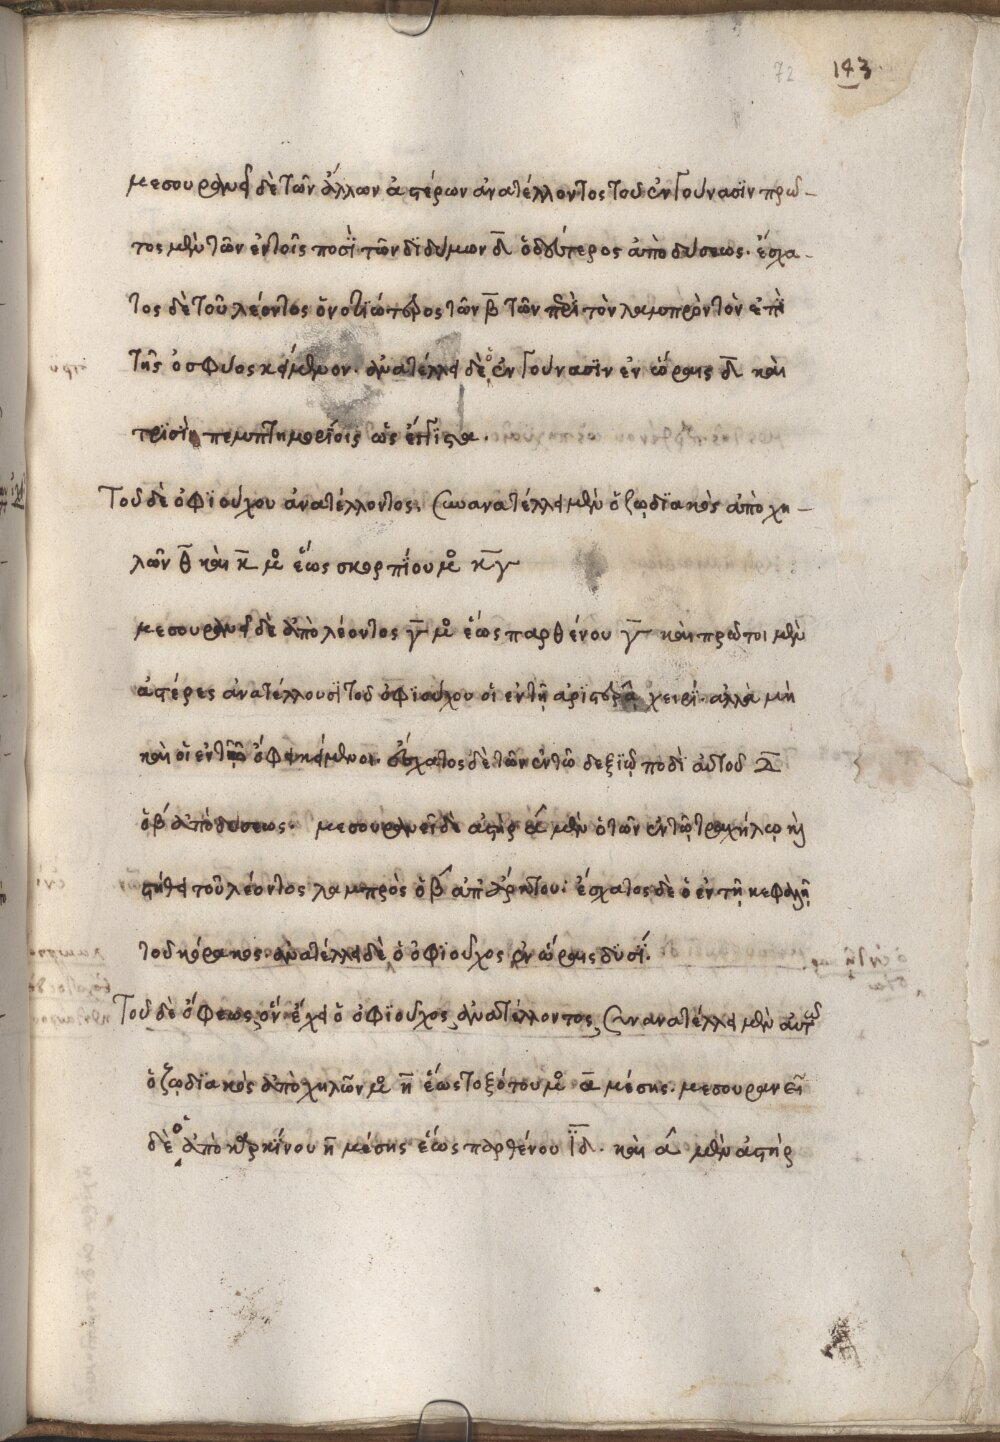 72 143
μεσουρανεῖ δὲ τῶν ἄλλων ἀστέρων ἀνατέλλοντος τοῦ ἐν γούνασϊν πρῶ-
τος μὲν τῶν ἐν τοῖς ποσῒ τῶν διδύμων δ̅ ὁ δεύτερος ἀπὸ δύσεως. ἔσχα-
τος δὲ τοῦ λέοντος ὁ νοτϊώτερος τῶν β̅ τῶν περὶ τὸν λαμπρὸν τὸν ἐπῒ
τῆς ὀσφύος κείμενον. ἀνατέλλει δὲ ὁ ἐν γούνασϊν ἐν ὥραις δ̅ καὶ
τρϊσὶν πεμπτημορίοις ὡς ἔγγιστα.
Τοῦ δὲ ὀφϊούχου ἀνατέλλοντος, συνανατέλλει μὲν ὁ ζῳδϊακὸς ἀπὸ χη-
λῶν θ̅ καὶ κ̅ μο ἕως σκορπίου μο κ̅γ
μεσουρανεῖ δὲ ἀπὸ λέοντος γ̅ μο ἕως παρθένου γ̅ καὶ πρῶτοι μὲν
ἀστέρες ἀνατέλλουσϊ τοῦ ὀφϊούχου οἱ ἐν τῇ ἀρϊστερᾷ χειρί. ἀλλὰ μὴ
καὶ οἱ ἐν τῷ ὄφει κείμενοι. ἔσχατος δὲ τῶν ἐν τῷ δεξϊῷ ποδὶ αὐτοῦ δ̅
ὁ β ἀπὸ δύσεως. μεσουρανεῖ δὲ ἀστὴρ α μὲν ὁ τῶν ἐν τῷ τραχήλῳ καὶ
στήθει τοῦ λέοντος λαμπρὸς ὁ β ἀπ' ἄρκτου. ἔσχατος δὲ ὁ ἐν τῇ κεφαλῇ
τοῦ κόρακος. ἀνατέλλει δὲ ὁ ὀφϊοῦχος ἐν ὥραις δυσΐ.
Τοῦ δὲ ὄφεως, ὃν ἔχει ὁ ὀφϊοῦχος, ἀνατέλλοντος, συνανατέλλει μὲν αὐτῶ
ὁ ζῳδϊακὸς ἀπὸ χηλῶν μο η̅ ἕως τοξότου μο α̅ μέσης. μεσουρανεῖ
δὲ ὁ ἀπὸ καρκίνου η̅ μέσης ἕως παρθένου ϊ̅δ̅. καὶ α μὲν ἀστὴρ